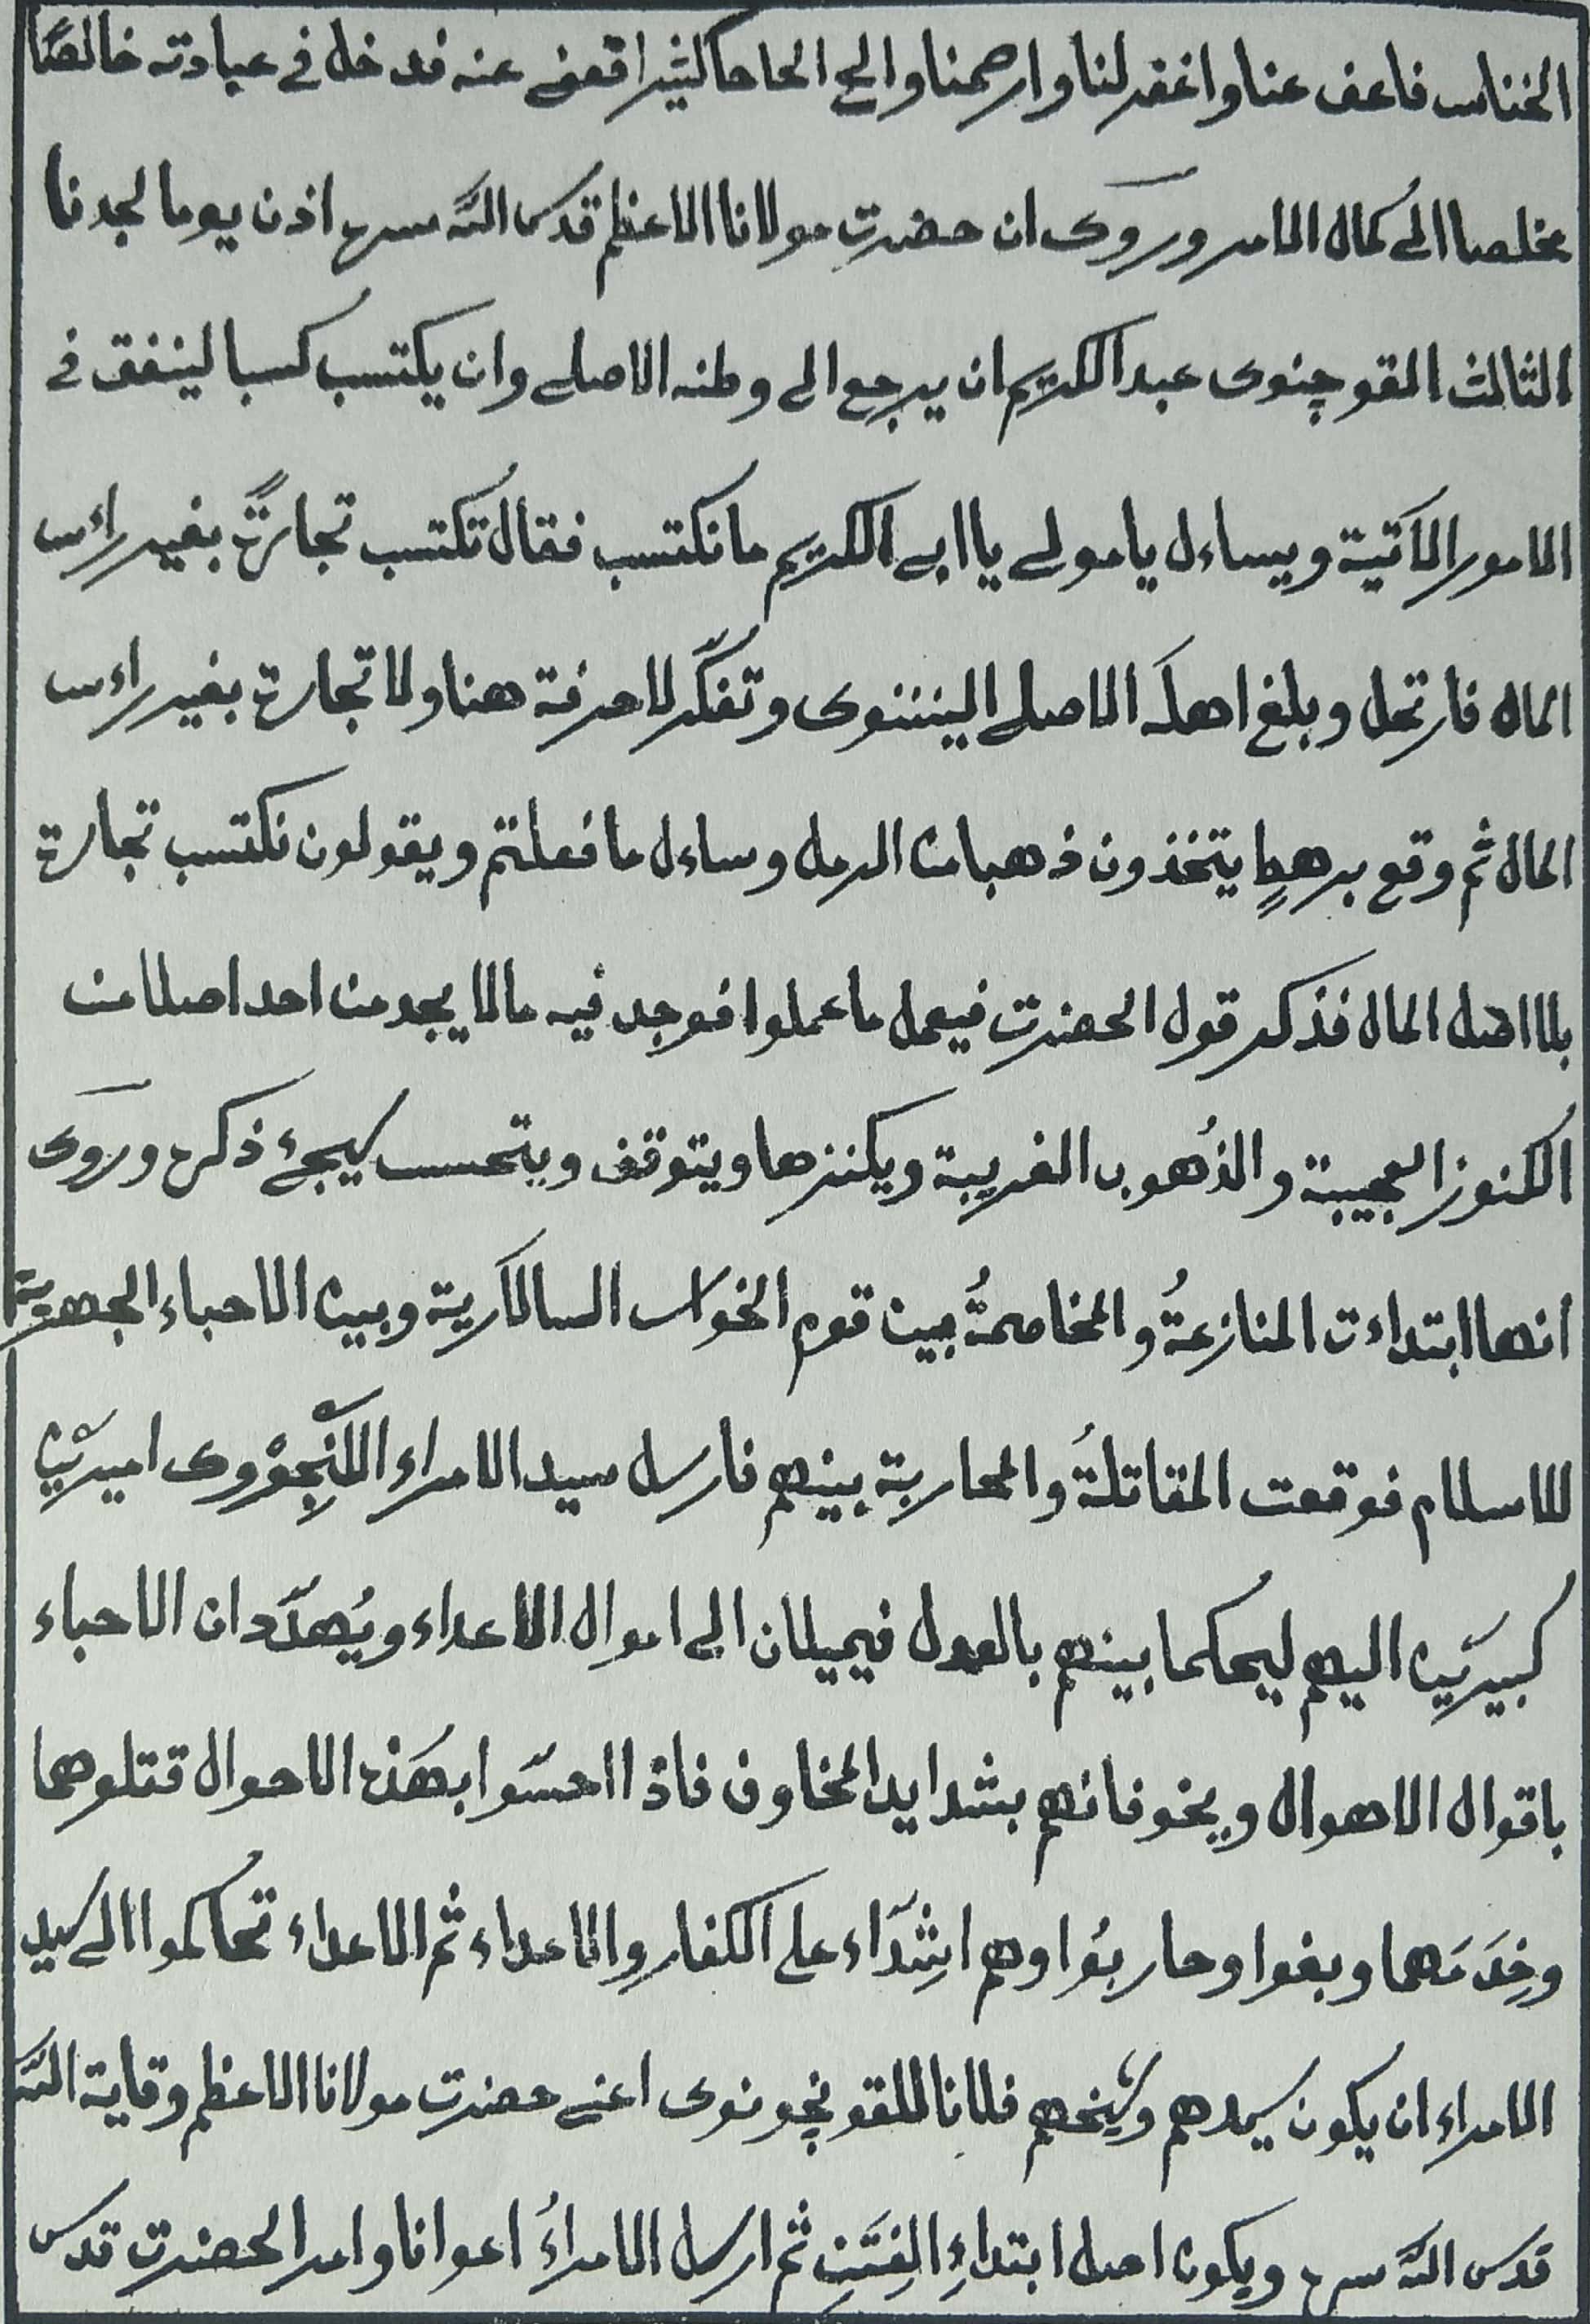 الخناس فاعف عنا واغفر لنا وارحمنا والح الحاحا كثيرا فعفى عنه فدخل فى عبادته خالصًا
مخلصا الى كمال الامر وروى ان حضرت مولانا الاعظم قدس الله سره اذن يوما لجدنا
الثالث القوچنوى عبد الكريم ان يرجع الى وطنه الاصلى وان يكتسب كسبا لينفق فى
الامور الآتية ويساءل يا مولى يا ابى الكريم ما نكتسب فقال تُكتسب تجارةً بغير راءس
المال فارتحل وبلغ اهلَه الاصلى الينسوى وتفكّر لا حرفة هنا ولا تجارة بغير راءس
المال ثم وقع برهطٍ يتخذون ذهبا من الرمل وساءل ما فعلتم ويقولون نكتسب تجارة
بلا اصل المال فذكر قول الحضرت فيعمل ما عملوا فوجد فيه مالا يجد من احد اصلا من
الكنوز العجيبة والذُهوب الغريبة ويكنزها ويتوقف ويتحسب كيجئ ذكره وروى
انها ابتداءت المنازعةُ والمخاصمةُ بين قوم الخواس السالارية وبين الاحباء الجهرية
للاسلام فوقعت المقاتلةُ والمحاربة بينهم فارسل سيد الامراء اميرين
كبيرين اليهم ليحكما بينهم بالعدل فيميلان الى اموال الاعداء ويُهدّدان الاحباء
باقوال الاهوال ويخوفانهم بشدايد المخاوف فاذا احسّوا بهذه الاحوال قتلوهما
وخَدَمَهما وبغوا وحاربُوا وهم اشِدّاء على الكفار والاعداء ثم الاعداء تحاكموا الى سيد
الامراء ان يكون سيدهم وشيخهم فلانا القونچونوى اعنى حضرت مولانا الاعظم وقاية الله
قدس الله سره ويكون اصل ابتداءِ الفِتَنِ ثم ارسل الامراءُ اعوانا وامر الحضرت قدس